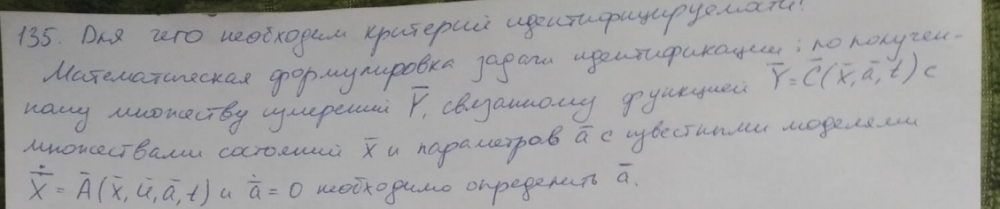 135. Для чего необходим критерий идентифицируемости?
Математическая формулировка задачи идентификации: по получен-
ному множеству измерений Ȳ, связанному функцией Ȳ = C̄(x̄, ā, t) с
множествами состояний x̄ и параметров ā с известными моделями
Ẋ̄ = Ā(x̄, ū, ā, t) и ǡ = 0 необходимо определить ā.